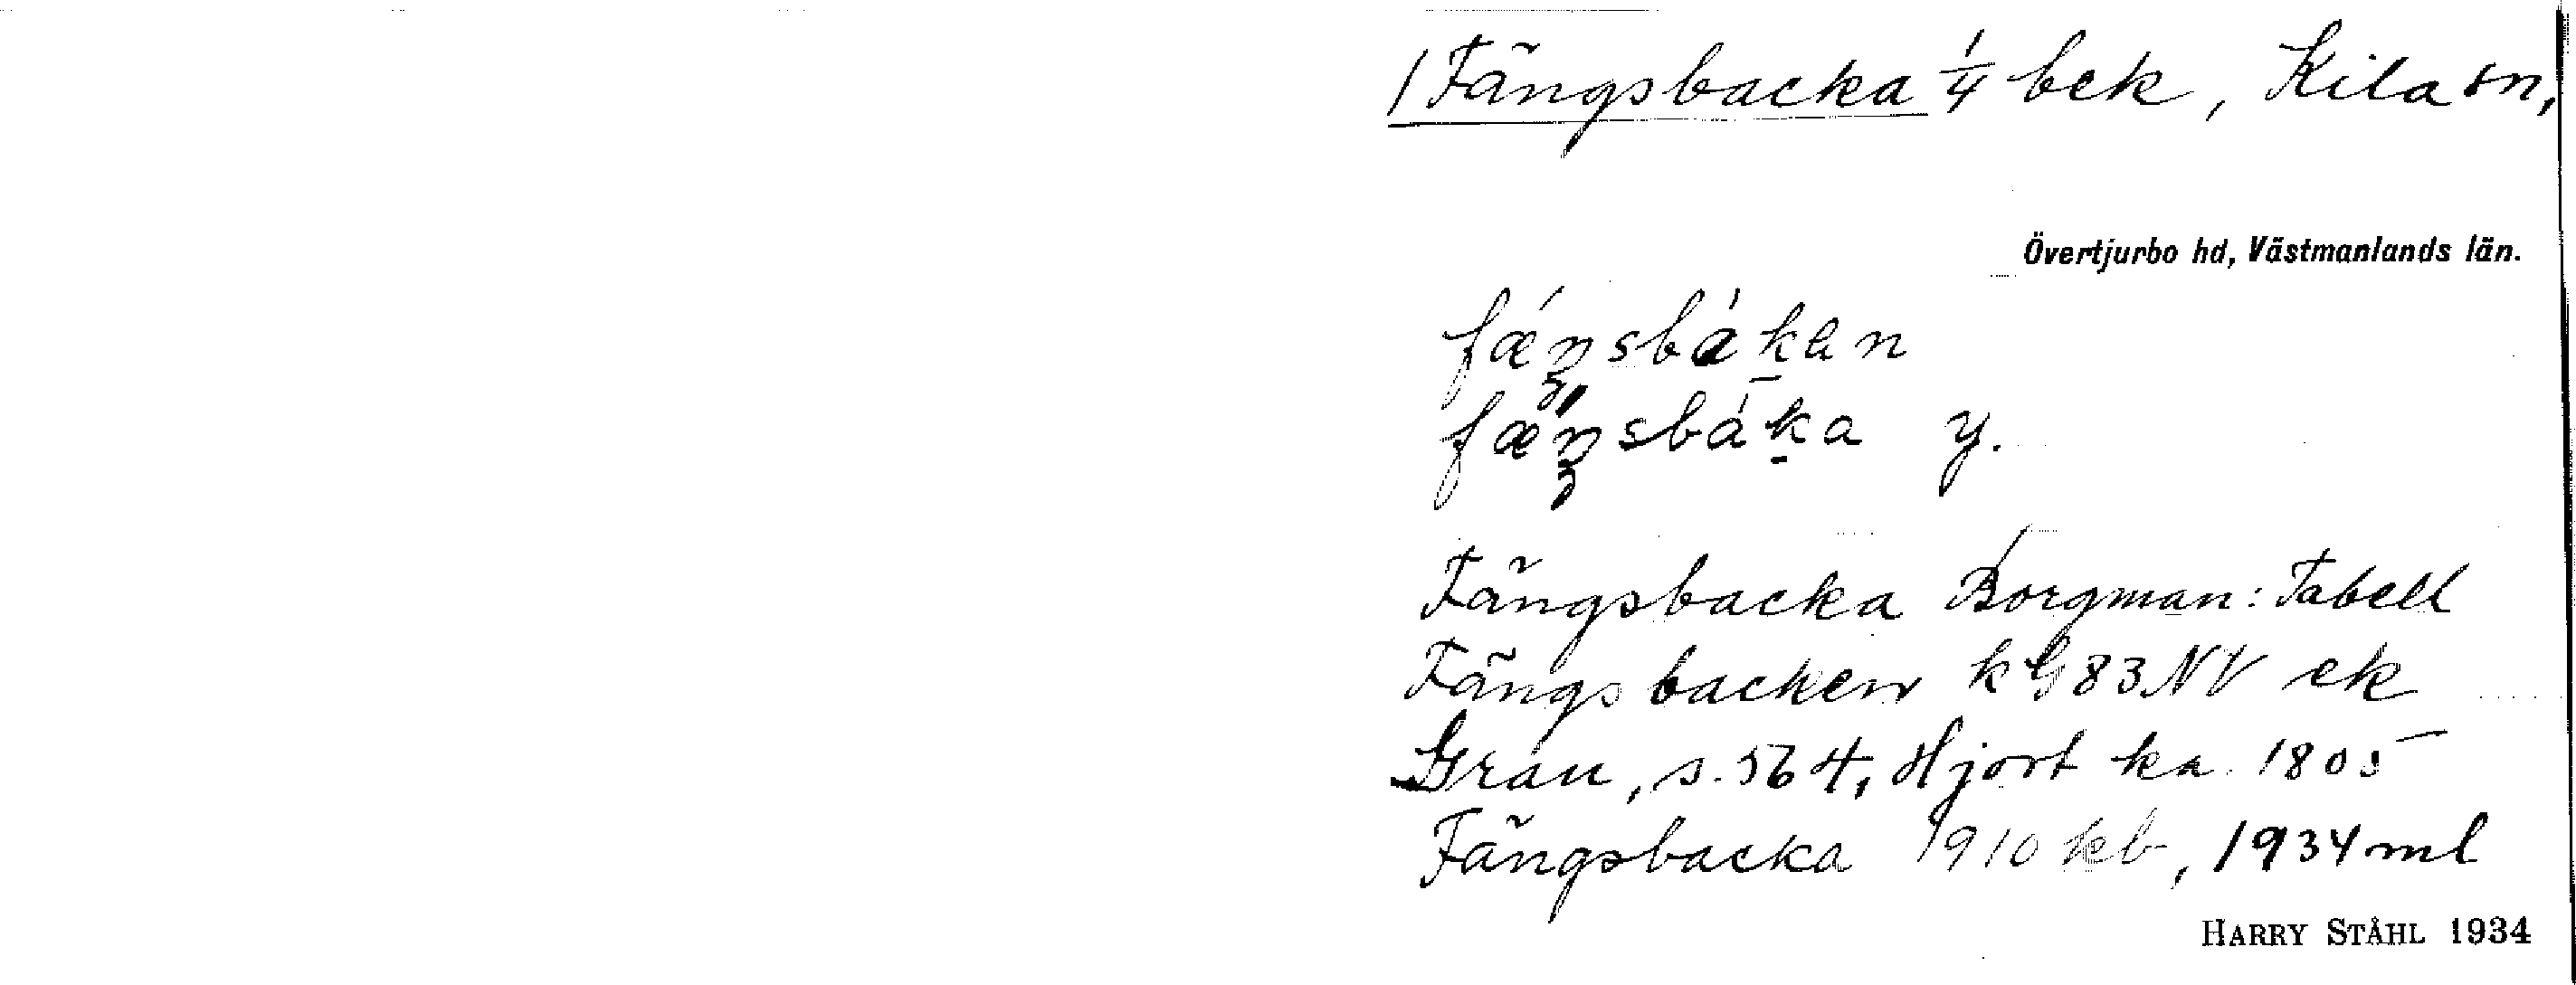 1 Fängsbacka 1/4 bek, Kila sn,
Övertjurbo hd, Västmanlands län.
fǽŋsbàkan
fǽŋsbàka y.
Fängsbacka Borgman: Tabell
Fängsbacken kG 83 NV ek
Grau, s. 564, Hjort ka 1805
Fängsbacka 1910 kb, 1934 ml
HARRY STÅHL 1934